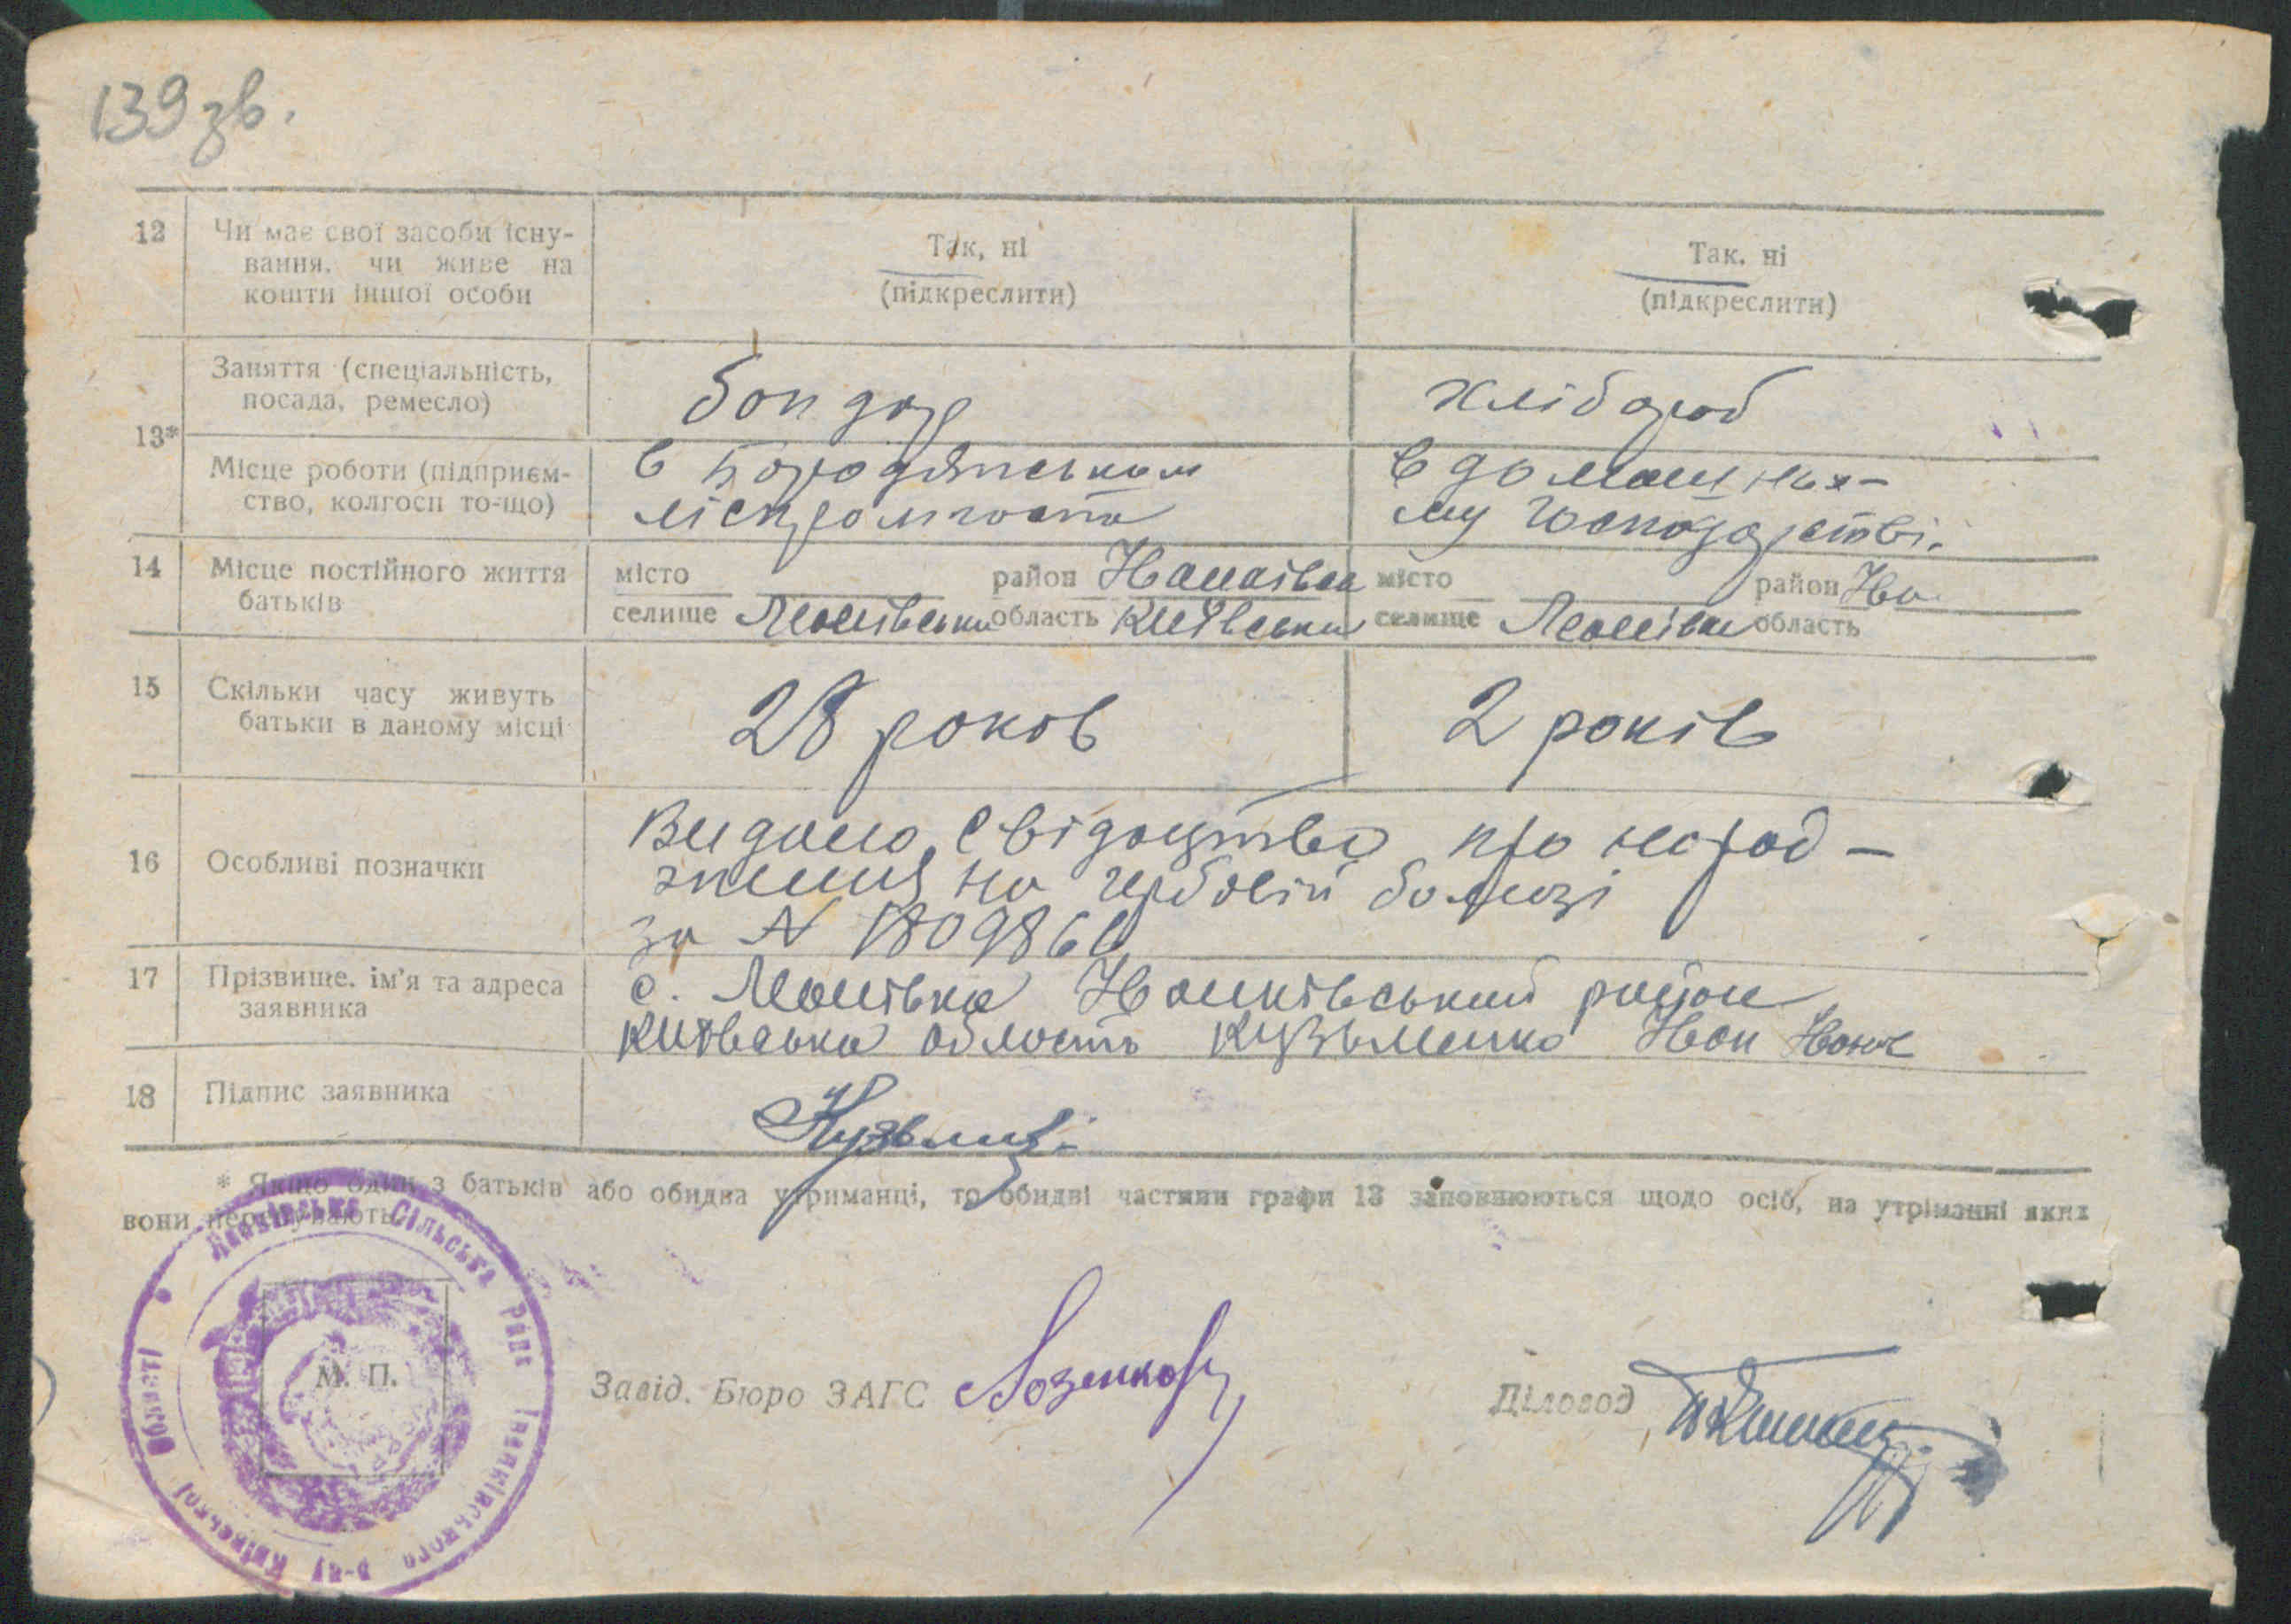 139 зв.
12 Чи має свої засоби існу-
вання, чи живе на
кошти іншої особи
Так, ні
(підкреслити)
Так, ні
(підкреслити)
13*
Заняття (спеціальність,
посада, ремесло)
бондар
хлібороб
Місце роботи (підприєм-
ство, колгосп то-що)
в Бородянськом
ліспромгоспі
в домашньо-
му господарстві.
14 Місце постійного життя
батьків
місто район
селище область Київська
місто район Іва
селище область
15 Скільки часу живуть
батьки в даному місці
28 років
2 років
16 Особливі позначки
Видано свідоцтво про народ-
ження на гербовій бомазі
за № 180986
17 Прізвище, ім'я та адреса
заявника
с. Іванківський район
Київська область Кузьменко Іван
18 Підпис заявника
* Якщо один з батьків або обидва утриманці, то обидві частини графи 13 заповнюються щодо осіб, на утріманні яких
вони перебувають.
Сільська Рада Іванківського р-ну Київської Області
М. П.
Завід. Бюро ЗАГС
Діловод